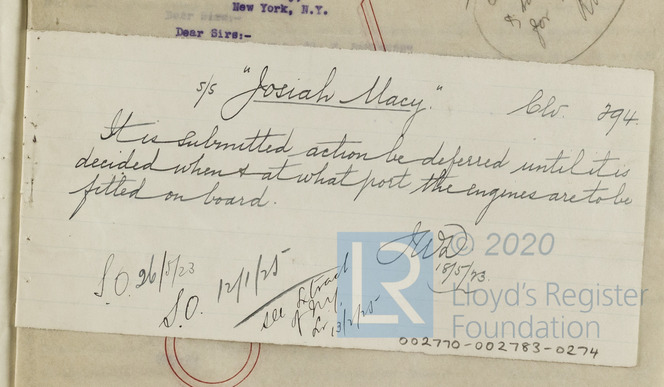 New York, N.Y.
Dear Sirs:-
Dear Sirs:-
s/s "Josiah Macy." Clv. 294.
It is submitted action be deferred until it is
decided when & at what port the engines are to be
fitted on board.
18/5/23.
S.O. 26/5/23
S.O. 12/1/25
see Extract
13/2/25
LR
© 2020
Lloyd's Register
Foundation
002770-002783-0274
for